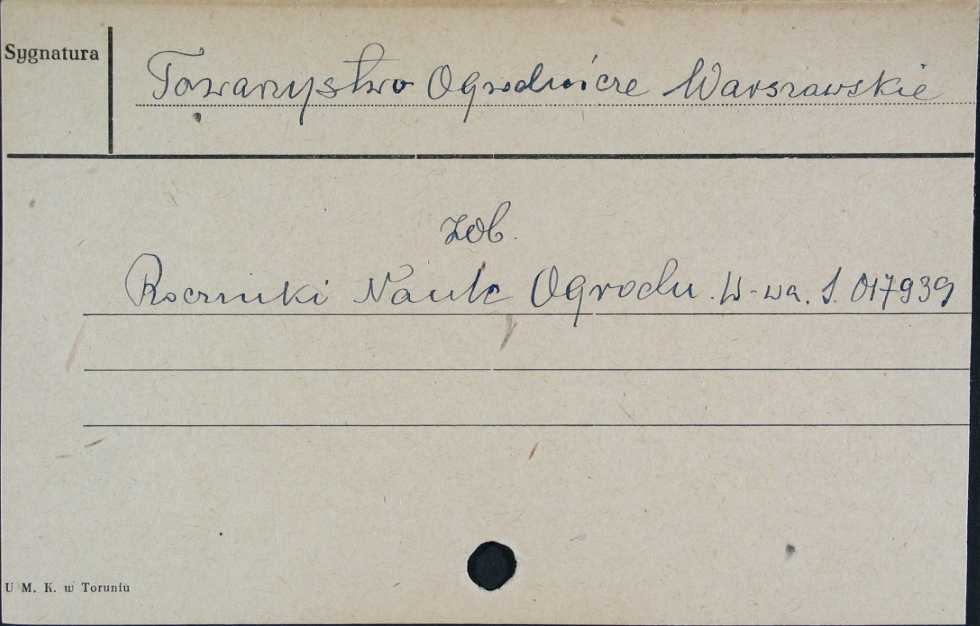 Sygnatura
Towarzystwo Ogrodnicze Warszawskie
zob.
Roczniki Nauk Ogrodn. W-wa. S. 017939
U M. K. w Toruniu